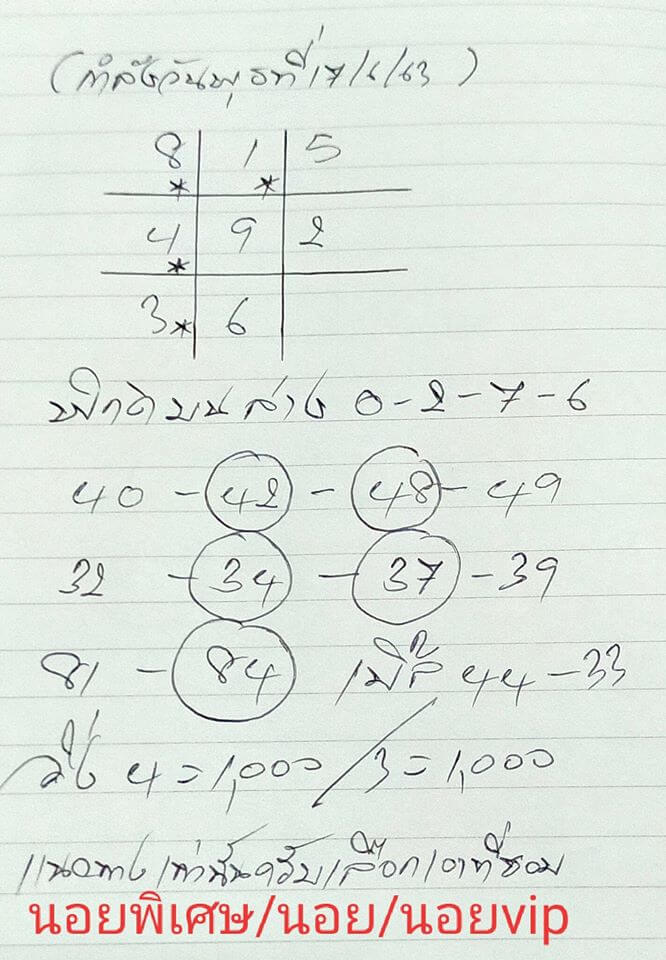 (กำลังวันพุธที่ 17/6/63)
8* 1* 5
4* 9 2
3* 6
พิกัดบนล่าง 0-2-7-6
40 - 42 - 48 - 49
32 - 34 - 37 - 39
81 - 84 เบิ้ล 44-33
วิ่ง 4=1,000/3=1,000
แนวทางเท่านั้นครับเลือกเอาที่ชอบ
นอยพิเศษ/นอย/นอยvip